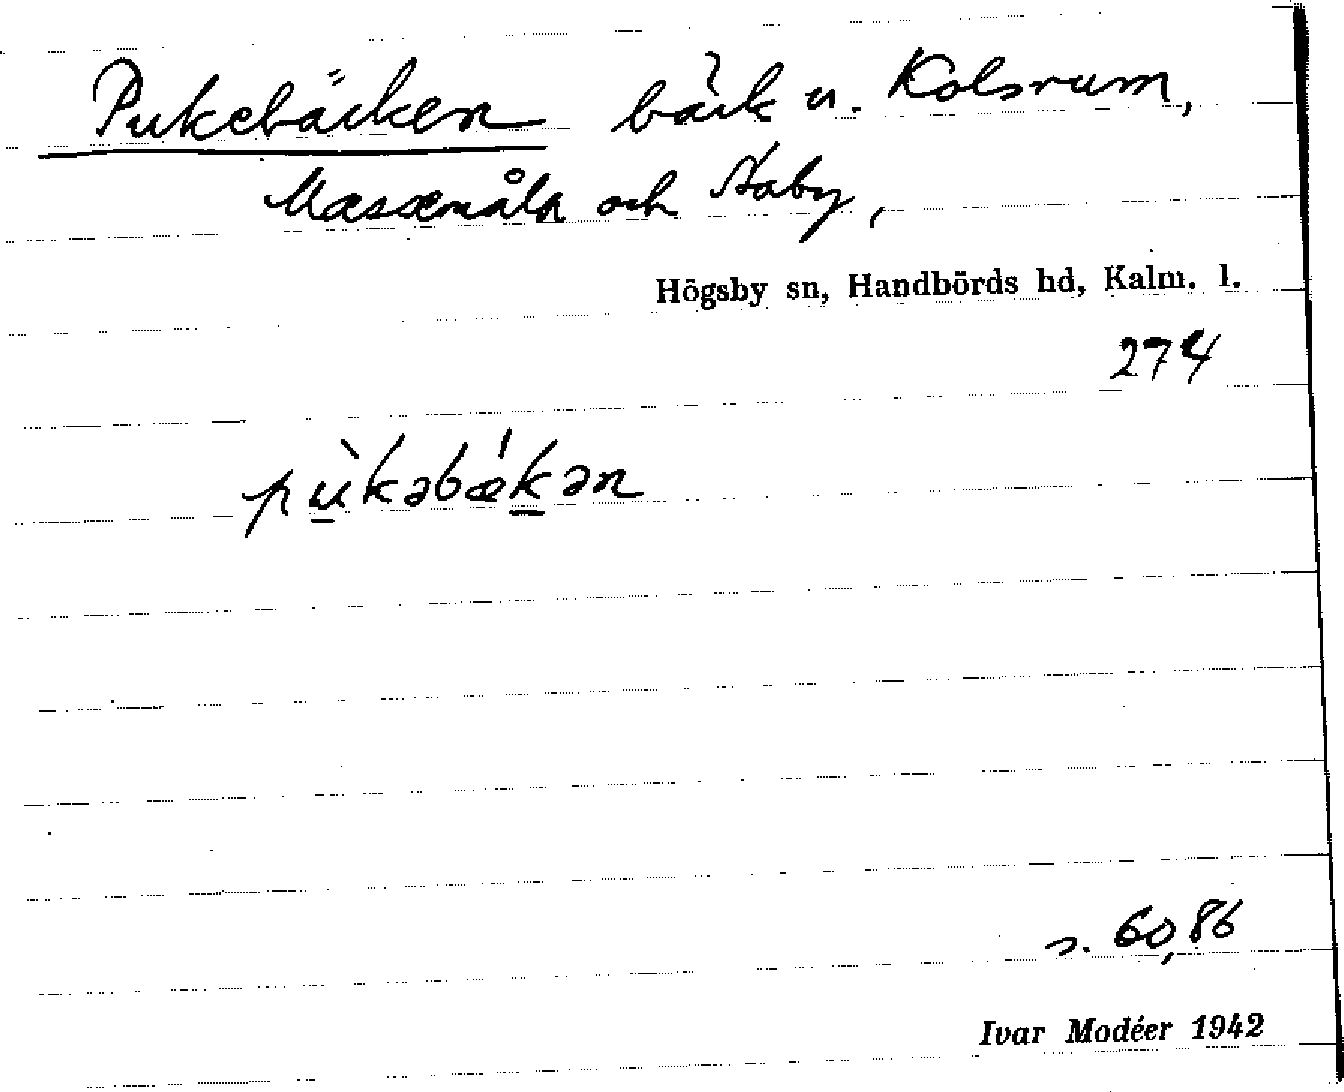 Pukebäcken bäck u. Kolsrum,
Massemåla och Staby,
Högsby sn, Handbörds hd, Kalm. l.
274
pù̲kəbæ̍k̲ən
s. 60, 86
Ivar Modéer 1942